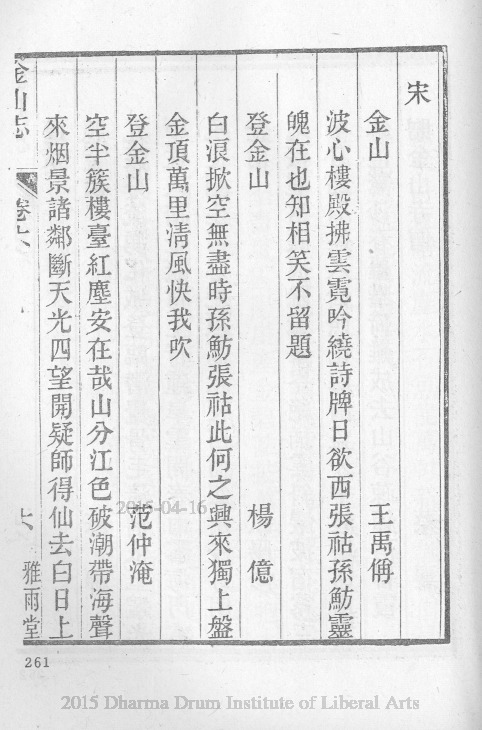 宋
金山　王禹偁
波心樓殿拂雲霓吟繞詩牌日欲西張祜孫魴靈
魄在也知相笑不留題
登金山　楊億
白浪掀空無盡時孫魴張祜此何之興來獨上盤
金頂萬里清風快我吹
登金山　范仲淹
空半簇樓臺紅塵安在哉山分江色破潮帶海聲
來烟景諸鄰斷天光四望開疑師得仙去白日上
金山志　卷六　雅雨堂
2015-04-16
261
2015 Dharma Drum Institute of Liberal Arts